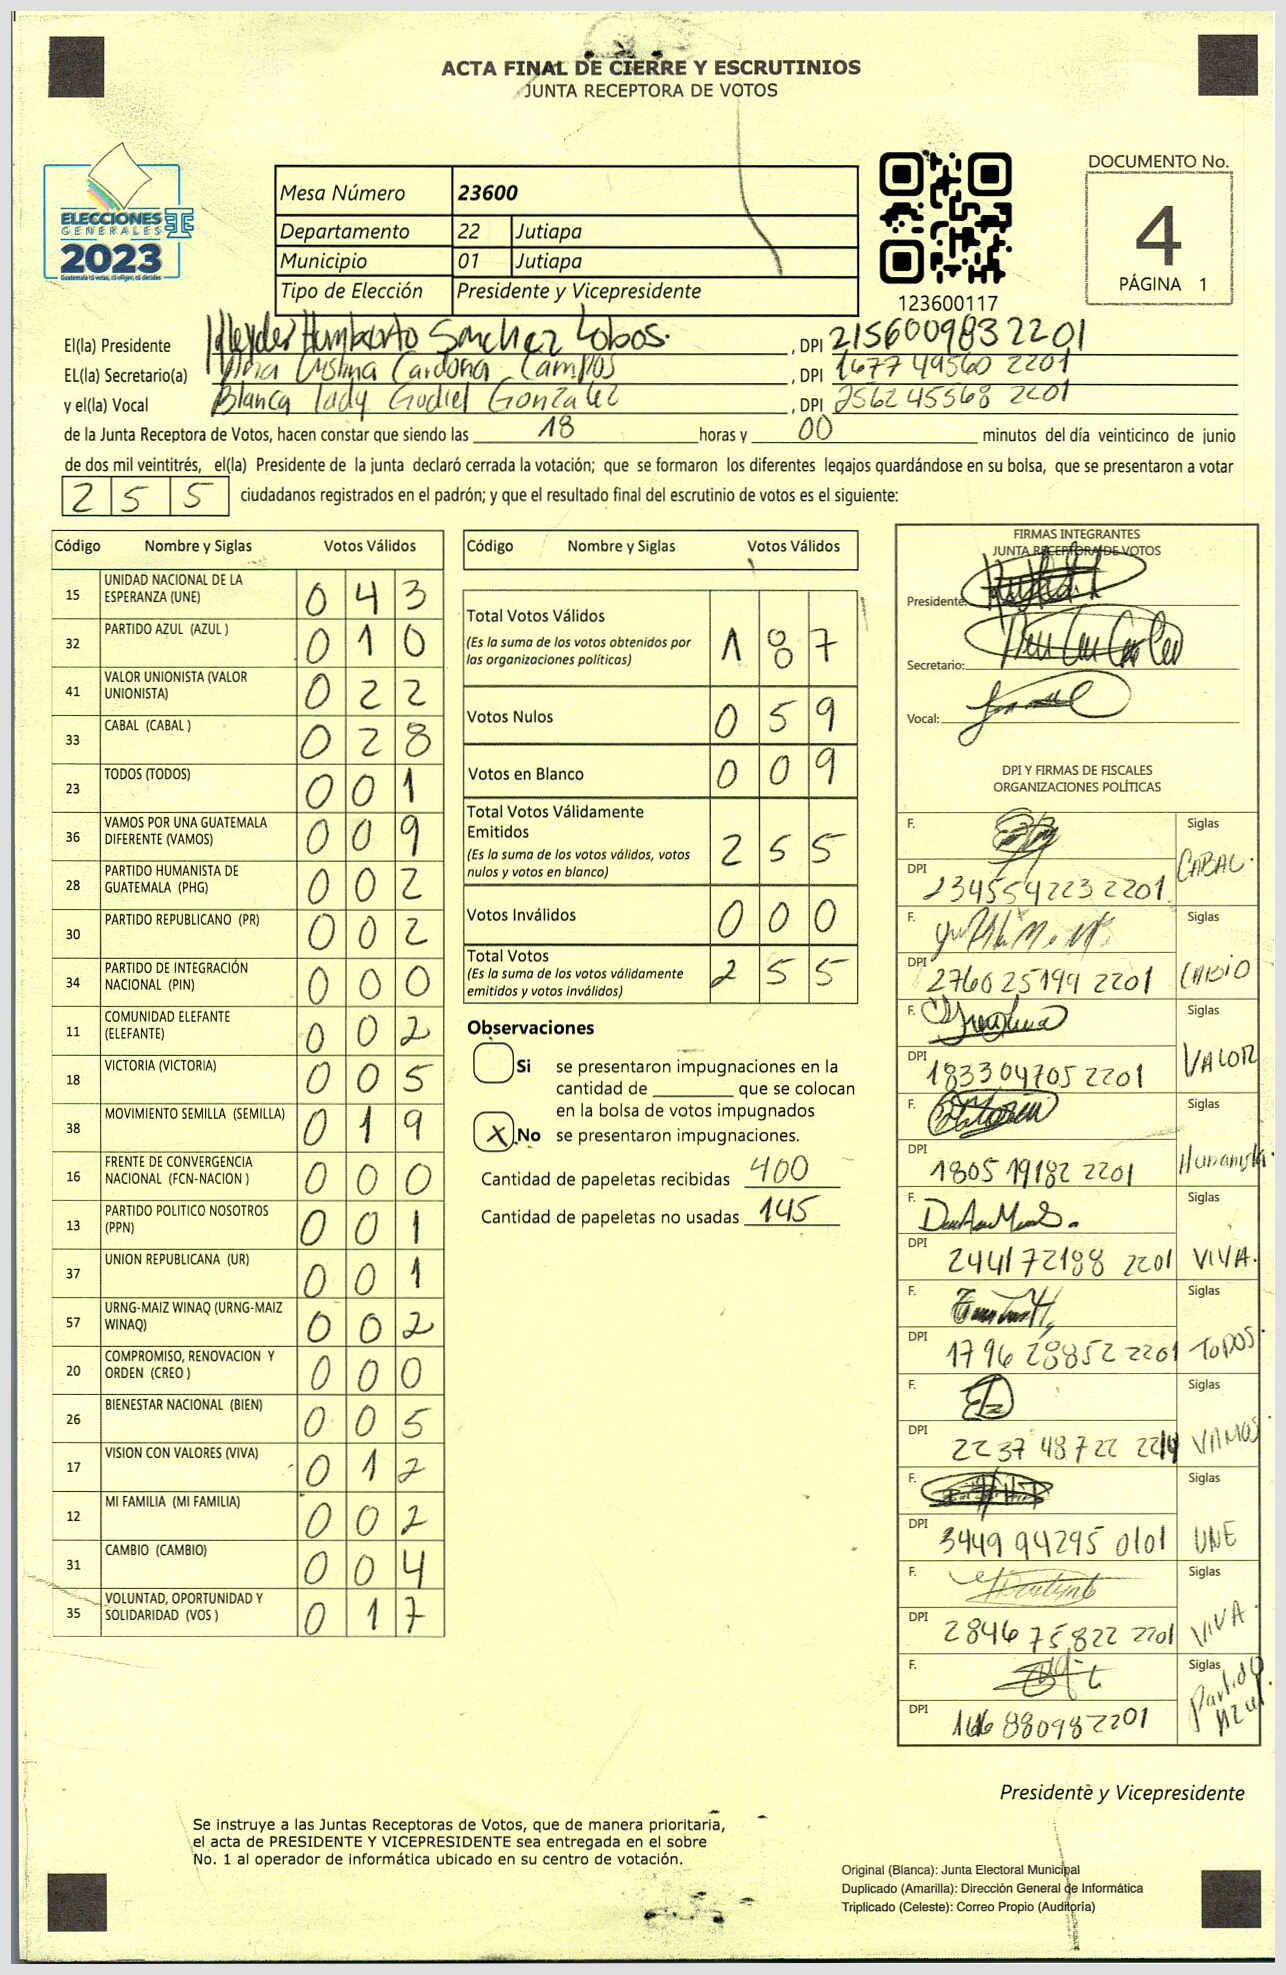 ACTA FINAL DE CIERRE Y ESCRUTINIOS
JUNTA RECEPTORA DE VOTOS
ELECCIONES
GENERALES
2023
Mesa Número 23600
Departamento 22 Jutiapa
Municipio 01 Jutiapa
Tipo de Elección Presidente y Vicepresidente
123600117
DOCUMENTO No.
4
PÁGINA 1
El(la) Presidente Humberto Sanchez Lobos. , DPI 215600983 2201
EL(la) Secretario(a) Cristina Cardona Campos , DPI 1677 49560 2201
y el(la) Vocal Blanca Lady Godiel Gonzalez , DPI 2562 45568 2201
de la Junta Receptora de Votos, hacen constar que siendo las 18 horas y 00 minutos del día veinticinco de junio
de dos mil veintitrés, el(la) Presidente de la junta declaró cerrada la votación; que se formaron los diferentes legajos guardándose en su bolsa, que se presentaron a votar
255 ciudadanos registrados en el padrón; y que el resultado final del escrutinio de votos es el siguiente:
Código Nombre y Siglas Votos Válidos
15 UNIDAD NACIONAL DE LA ESPERANZA (UNE) 043
32 PARTIDO AZUL (AZUL ) 010
41 VALOR UNIONISTA (VALOR UNIONISTA) 022
33 CABAL (CABAL ) 028
23 TODOS (TODOS) 001
36 VAMOS POR UNA GUATEMALA DIFERENTE (VAMOS) 009
28 PARTIDO HUMANISTA DE GUATEMALA (PHG) 002
30 PARTIDO REPUBLICANO (PR) 002
34 PARTIDO DE INTEGRACIÓN NACIONAL (PIN) 000
11 COMUNIDAD ELEFANTE (ELEFANTE) 002
18 VICTORIA (VICTORIA) 005
38 MOVIMIENTO SEMILLA (SEMILLA) 019
16 FRENTE DE CONVERGENCIA NACIONAL (FCN-NACION ) 000
13 PARTIDO POLITICO NOSOTROS (PPN) 001
37 UNION REPUBLICANA (UR) 001
57 URNG-MAIZ WINAQ (URNG-MAIZ WINAQ) 002
20 COMPROMISO, RENOVACION Y ORDEN (CREO ) 000
26 BIENESTAR NACIONAL (BIEN) 005
17 VISION CON VALORES (VIVA) 012
12 MI FAMILIA (MI FAMILIA) 002
31 CAMBIO (CAMBIO) 004
35 VOLUNTAD, OPORTUNIDAD Y SOLIDARIDAD (VOS ) 017
Código Nombre y Siglas Votos Válidos
Total Votos Válidos 187
(Es la suma de los votos obtenidos por
las organizaciones políticas)
Votos Nulos 059
Votos en Blanco 009
Total Votos Válidamente
Emitidos 255
(Es la suma de los votos válidos, votos
nulos y votos en blanco)
Votos Inválidos 000
Total Votos 255
(Es la suma de los votos válidamente
emitidos y votos inválidos)
Observaciones
Si se presentaron impugnaciones en la
cantidad de ________ que se colocan
en la bolsa de votos impugnados
X No se presentaron impugnaciones.
Cantidad de papeletas recibidas 400
Cantidad de papeletas no usadas 145
FIRMAS INTEGRANTES
JUNTA RECEPTORA DE VOTOS
Presidente:
Secretario:
Vocal:
DPI Y FIRMAS DE FISCALES
ORGANIZACIONES POLÍTICAS
F. Siglas CABAL.
DPI 234554223 2201
F. Siglas
DPI 2760 25199 2201
F. Siglas VALOR
DPI 1833 04705 2201
F. Siglas Humanista
DPI 1805 19182 2201
F. Siglas VIVA.
DPI 2441 72188 2201
F. Siglas TODOS.
DPI 1796 28852 2201
F. Siglas VAMOS
DPI 2237 48722 2214
F. Siglas UNE
DPI 3449 94295 0101
F. Siglas VIVA.
DPI 2846 75822 2201
F. Siglas Partido Azul.
DPI 88098 2201
Presidente y Vicepresidente
Se instruye a las Juntas Receptoras de Votos, que de manera prioritaria,
el acta de PRESIDENTE Y VICEPRESIDENTE sea entregada en el sobre
No. 1 al operador de informática ubicado en su centro de votación.
Original (Blanca): Junta Electoral Municipal
Duplicado (Amarilla): Dirección General de Informática
Triplicado (Celeste): Correo Propio (Auditoría)